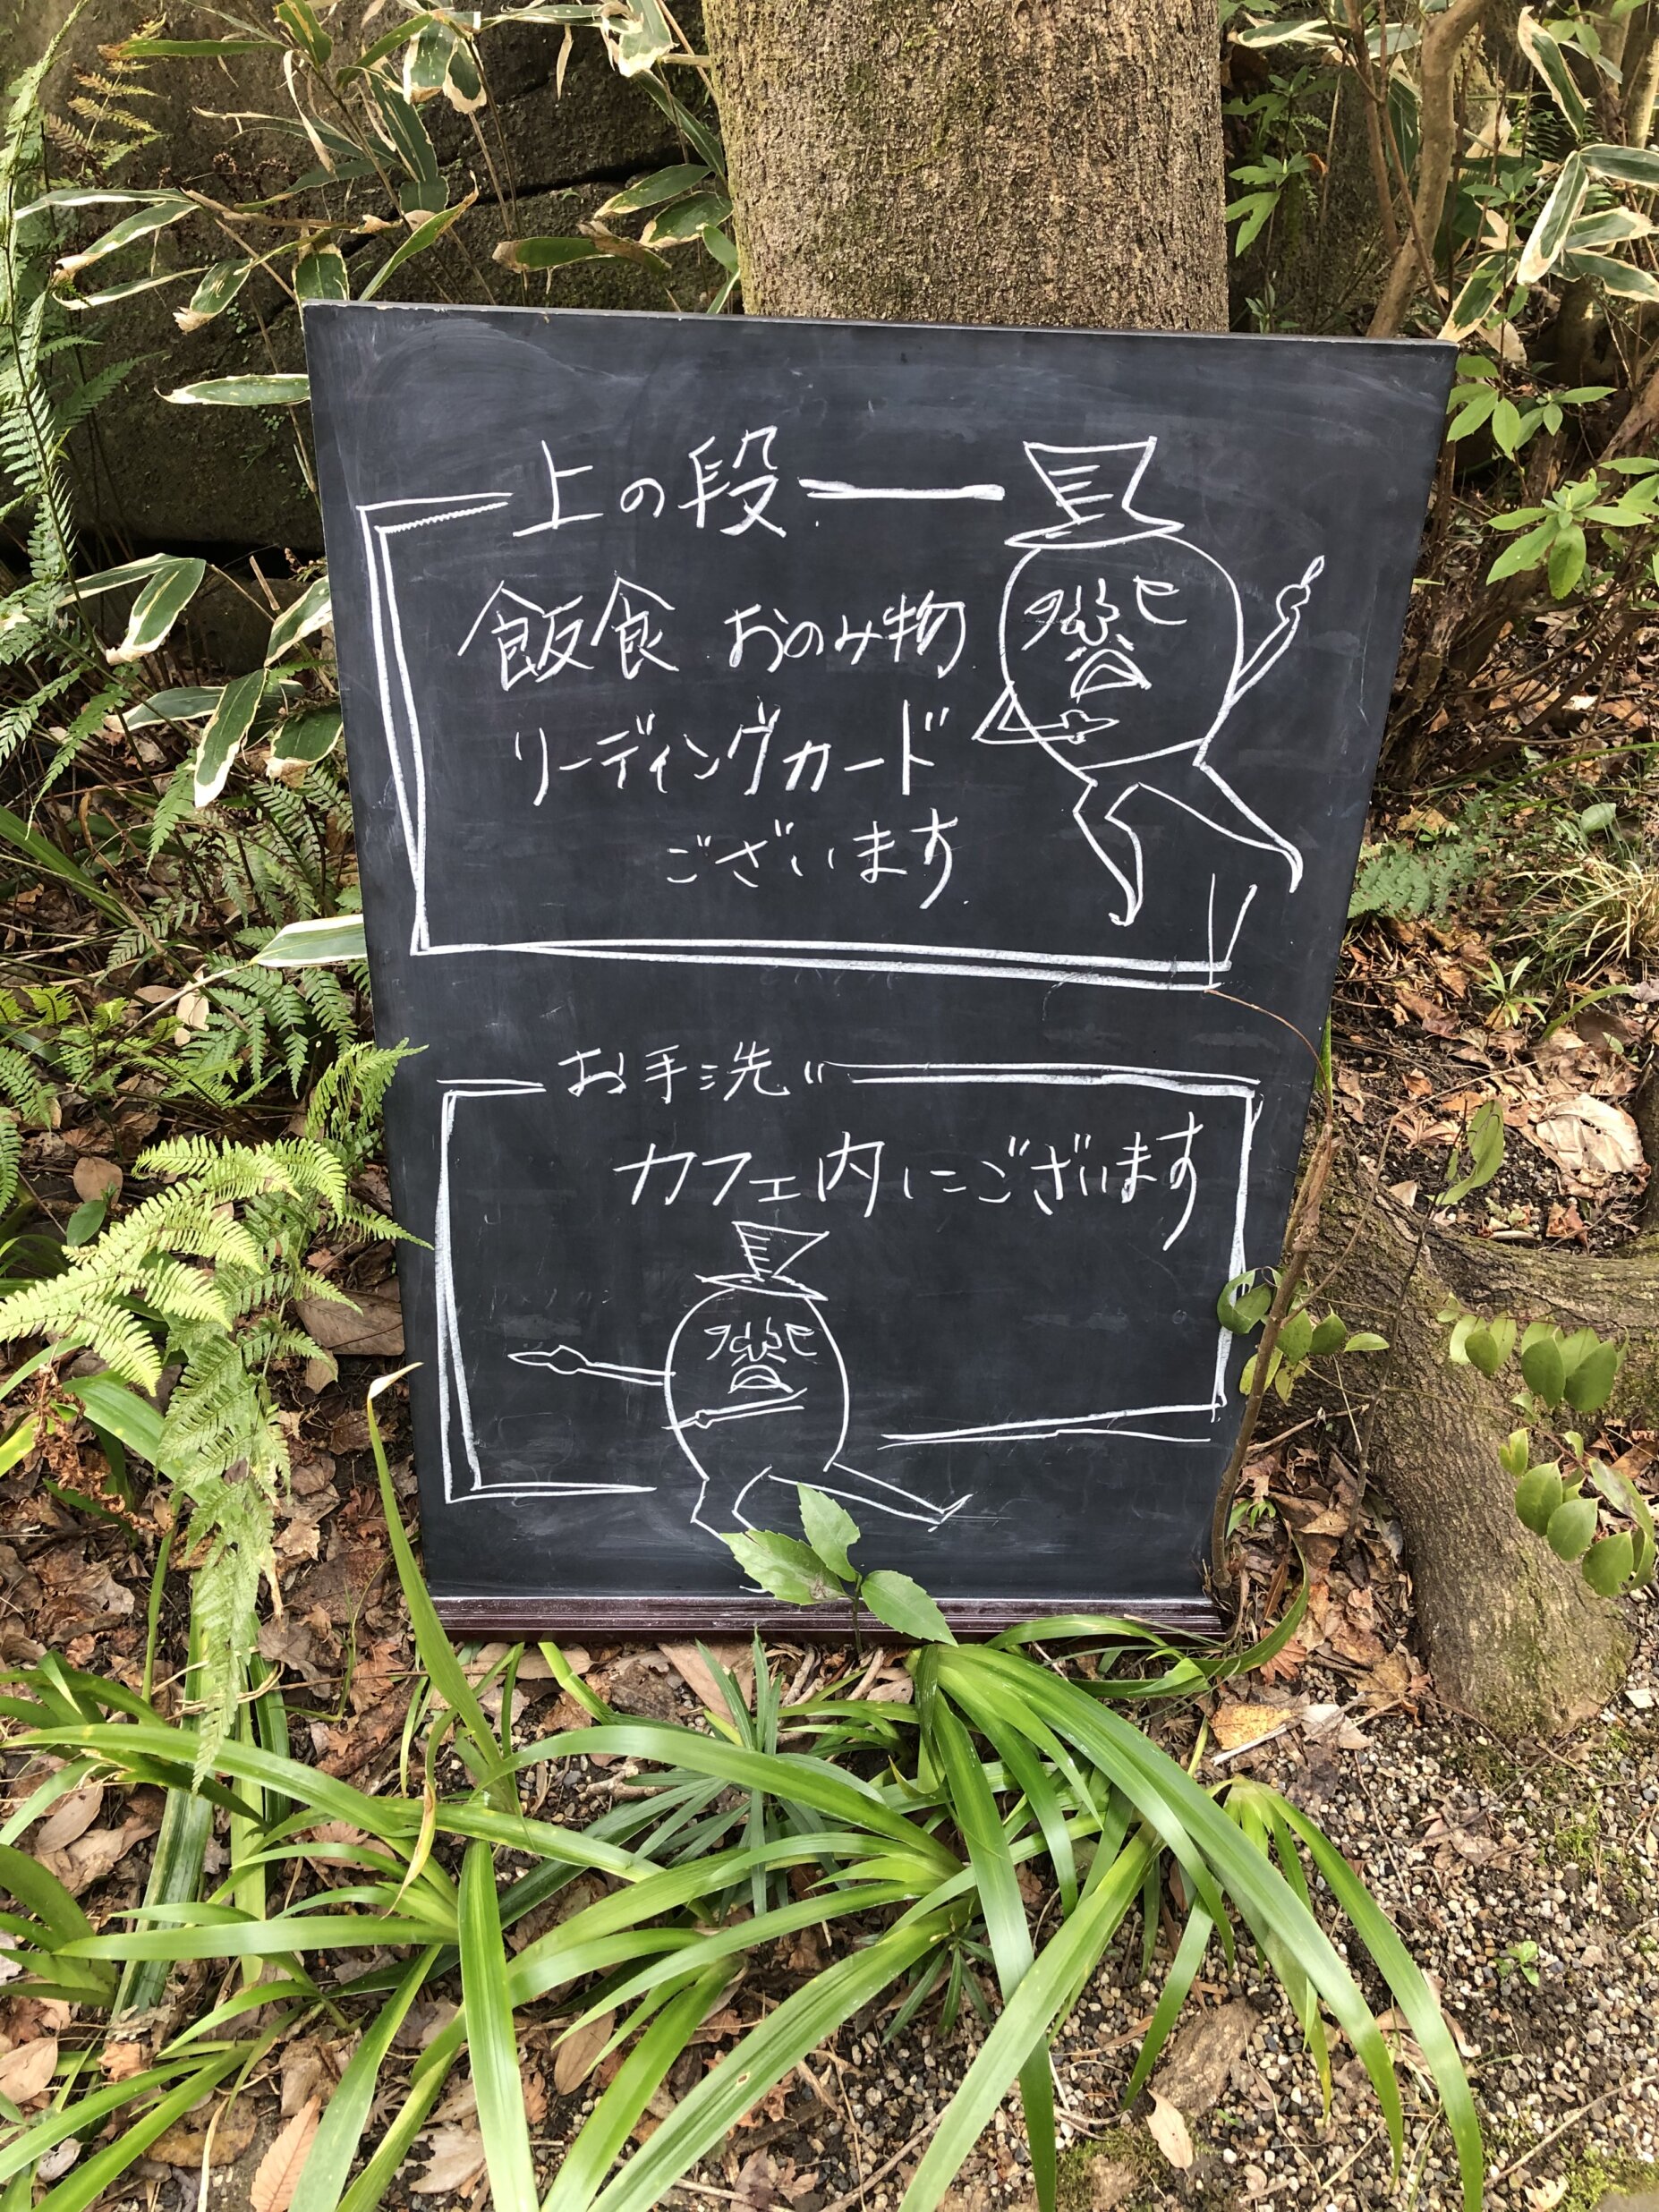 上の段
飯食 おのみ物
リーディングカード
ございます
お手洗い
カフェ内にございます